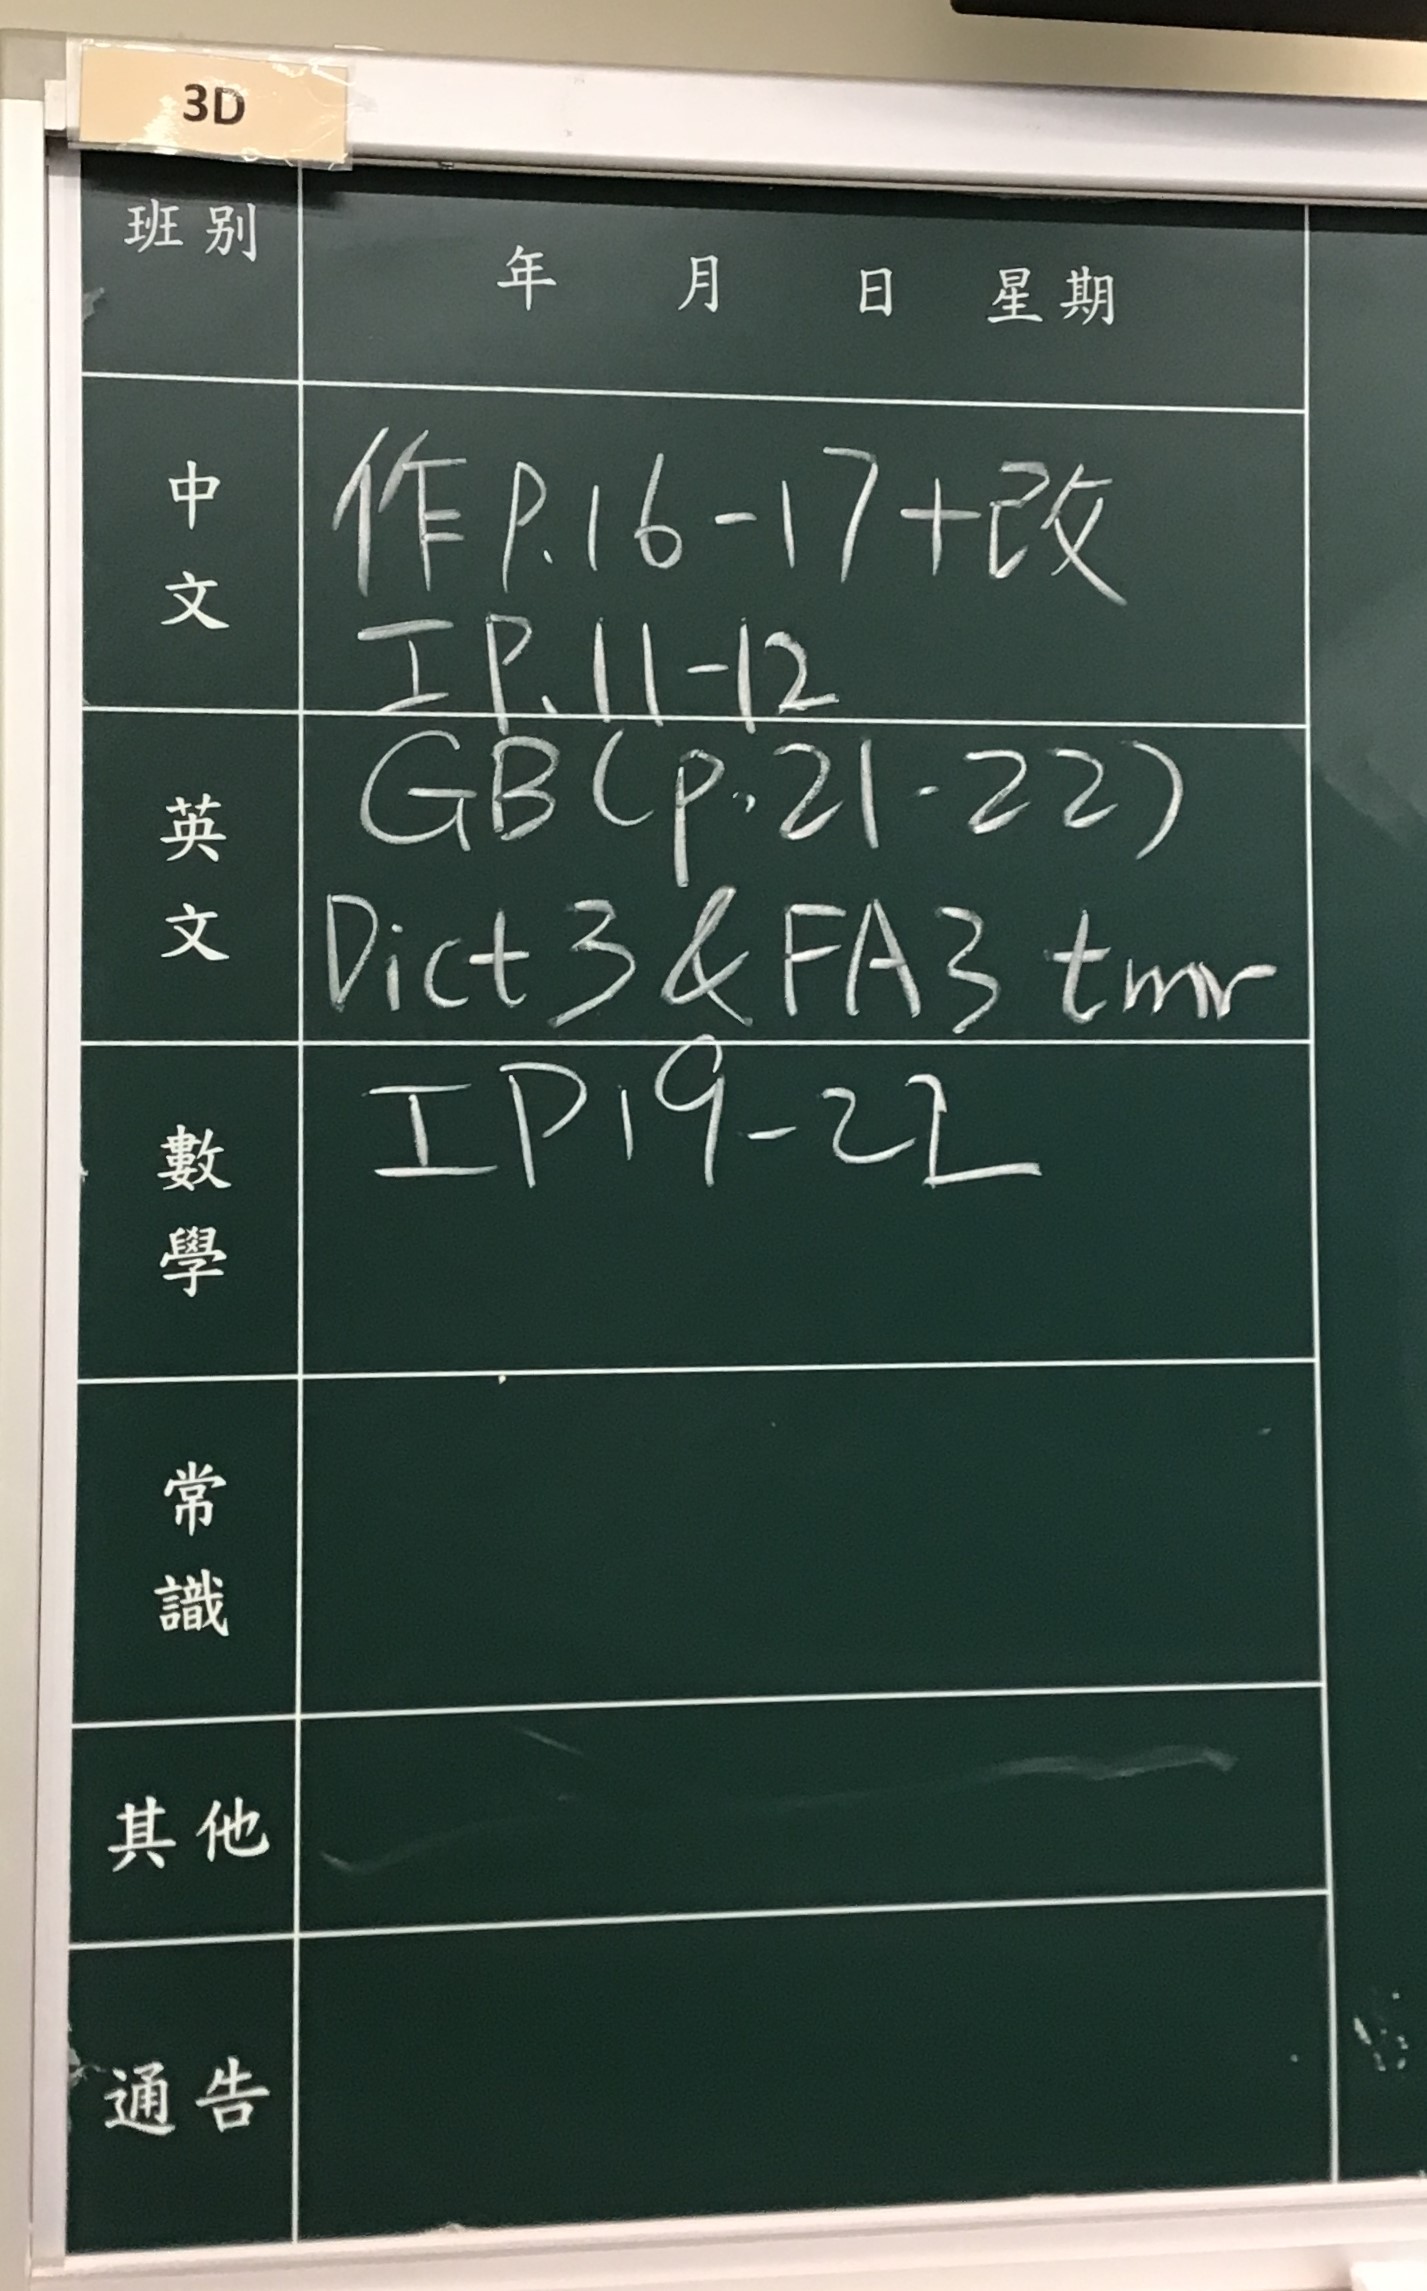 3D
班別
年 月 日 星期
中文
作 P.16-17+改
工 P.11-12
英文
GB (p.21-22)
Dict 3 & FA3 tmr
數學
工 P19-22
常識
其他
通告